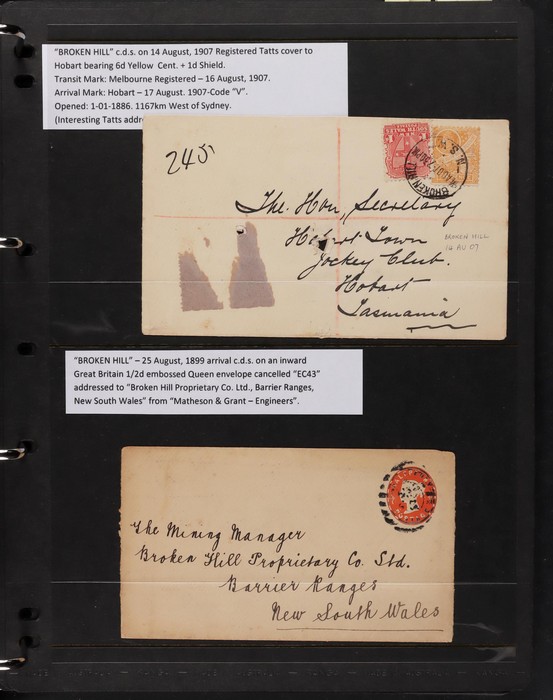 "BROKEN HILL" c.d.s. on 14 August, 1907 Registered Tatts cover to
Hobart bearing 6d Yellow Cent. + 1d Shield.
Transit Mark: Melbourne Registered – 16 August, 1907.
Arrival Mark: Hobart – 17 August. 1907-Code "V".
Opened: 1-01-1886. 1167km West of Sydney.
(Interesting Tatts addr
The Hon, Secretary
Hobart Town
Jockey Club.
Hobart
Tasmania
BROKEN HILL
14 AU 07
BROKEN HILL
"BROKEN HILL" – 25 August, 1899 arrival c.d.s. on an inward
Great Britain 1/2d embossed Queen envelope cancelled "EC43"
addressed to "Broken Hill Proprietary Co. Ltd., Barrier Ranges,
New South Wales" from "Matheson & Grant – Engineers".
The Mining Manager
Broken Hill Proprietary Co. Ltd.
Barrier Ranges
New South Wales